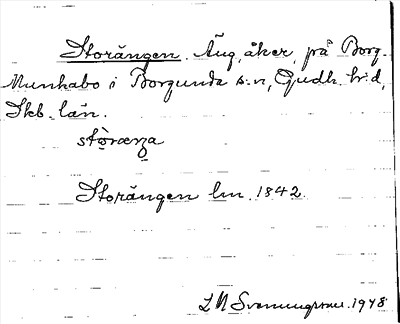 Storängen. Äng, åker på Borg-
Munkabo i Borgunda s:n, Gudh. h:d,
Skb. län.
stòræŋa
Storängen lm. 1842.
L M Svenungsson. 1948